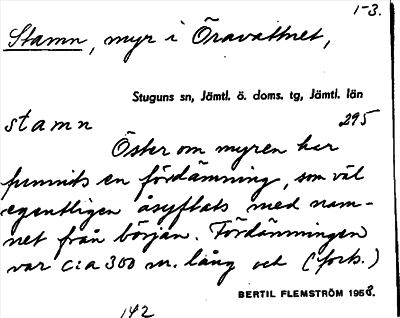 1-3.
Stamn, myr i Öravattnet,
Stuguns sn, Jämtl. ö. doms. tg, Jämtl. län
stamn 295
Öster om myren har
funnits en fördämning, som väl
egentligen åsyftats med nam-
net från början. Fördämningen
var c:a 300 m. lång och (forts.)
BERTIL FLEMSTRÖM 1968.
142